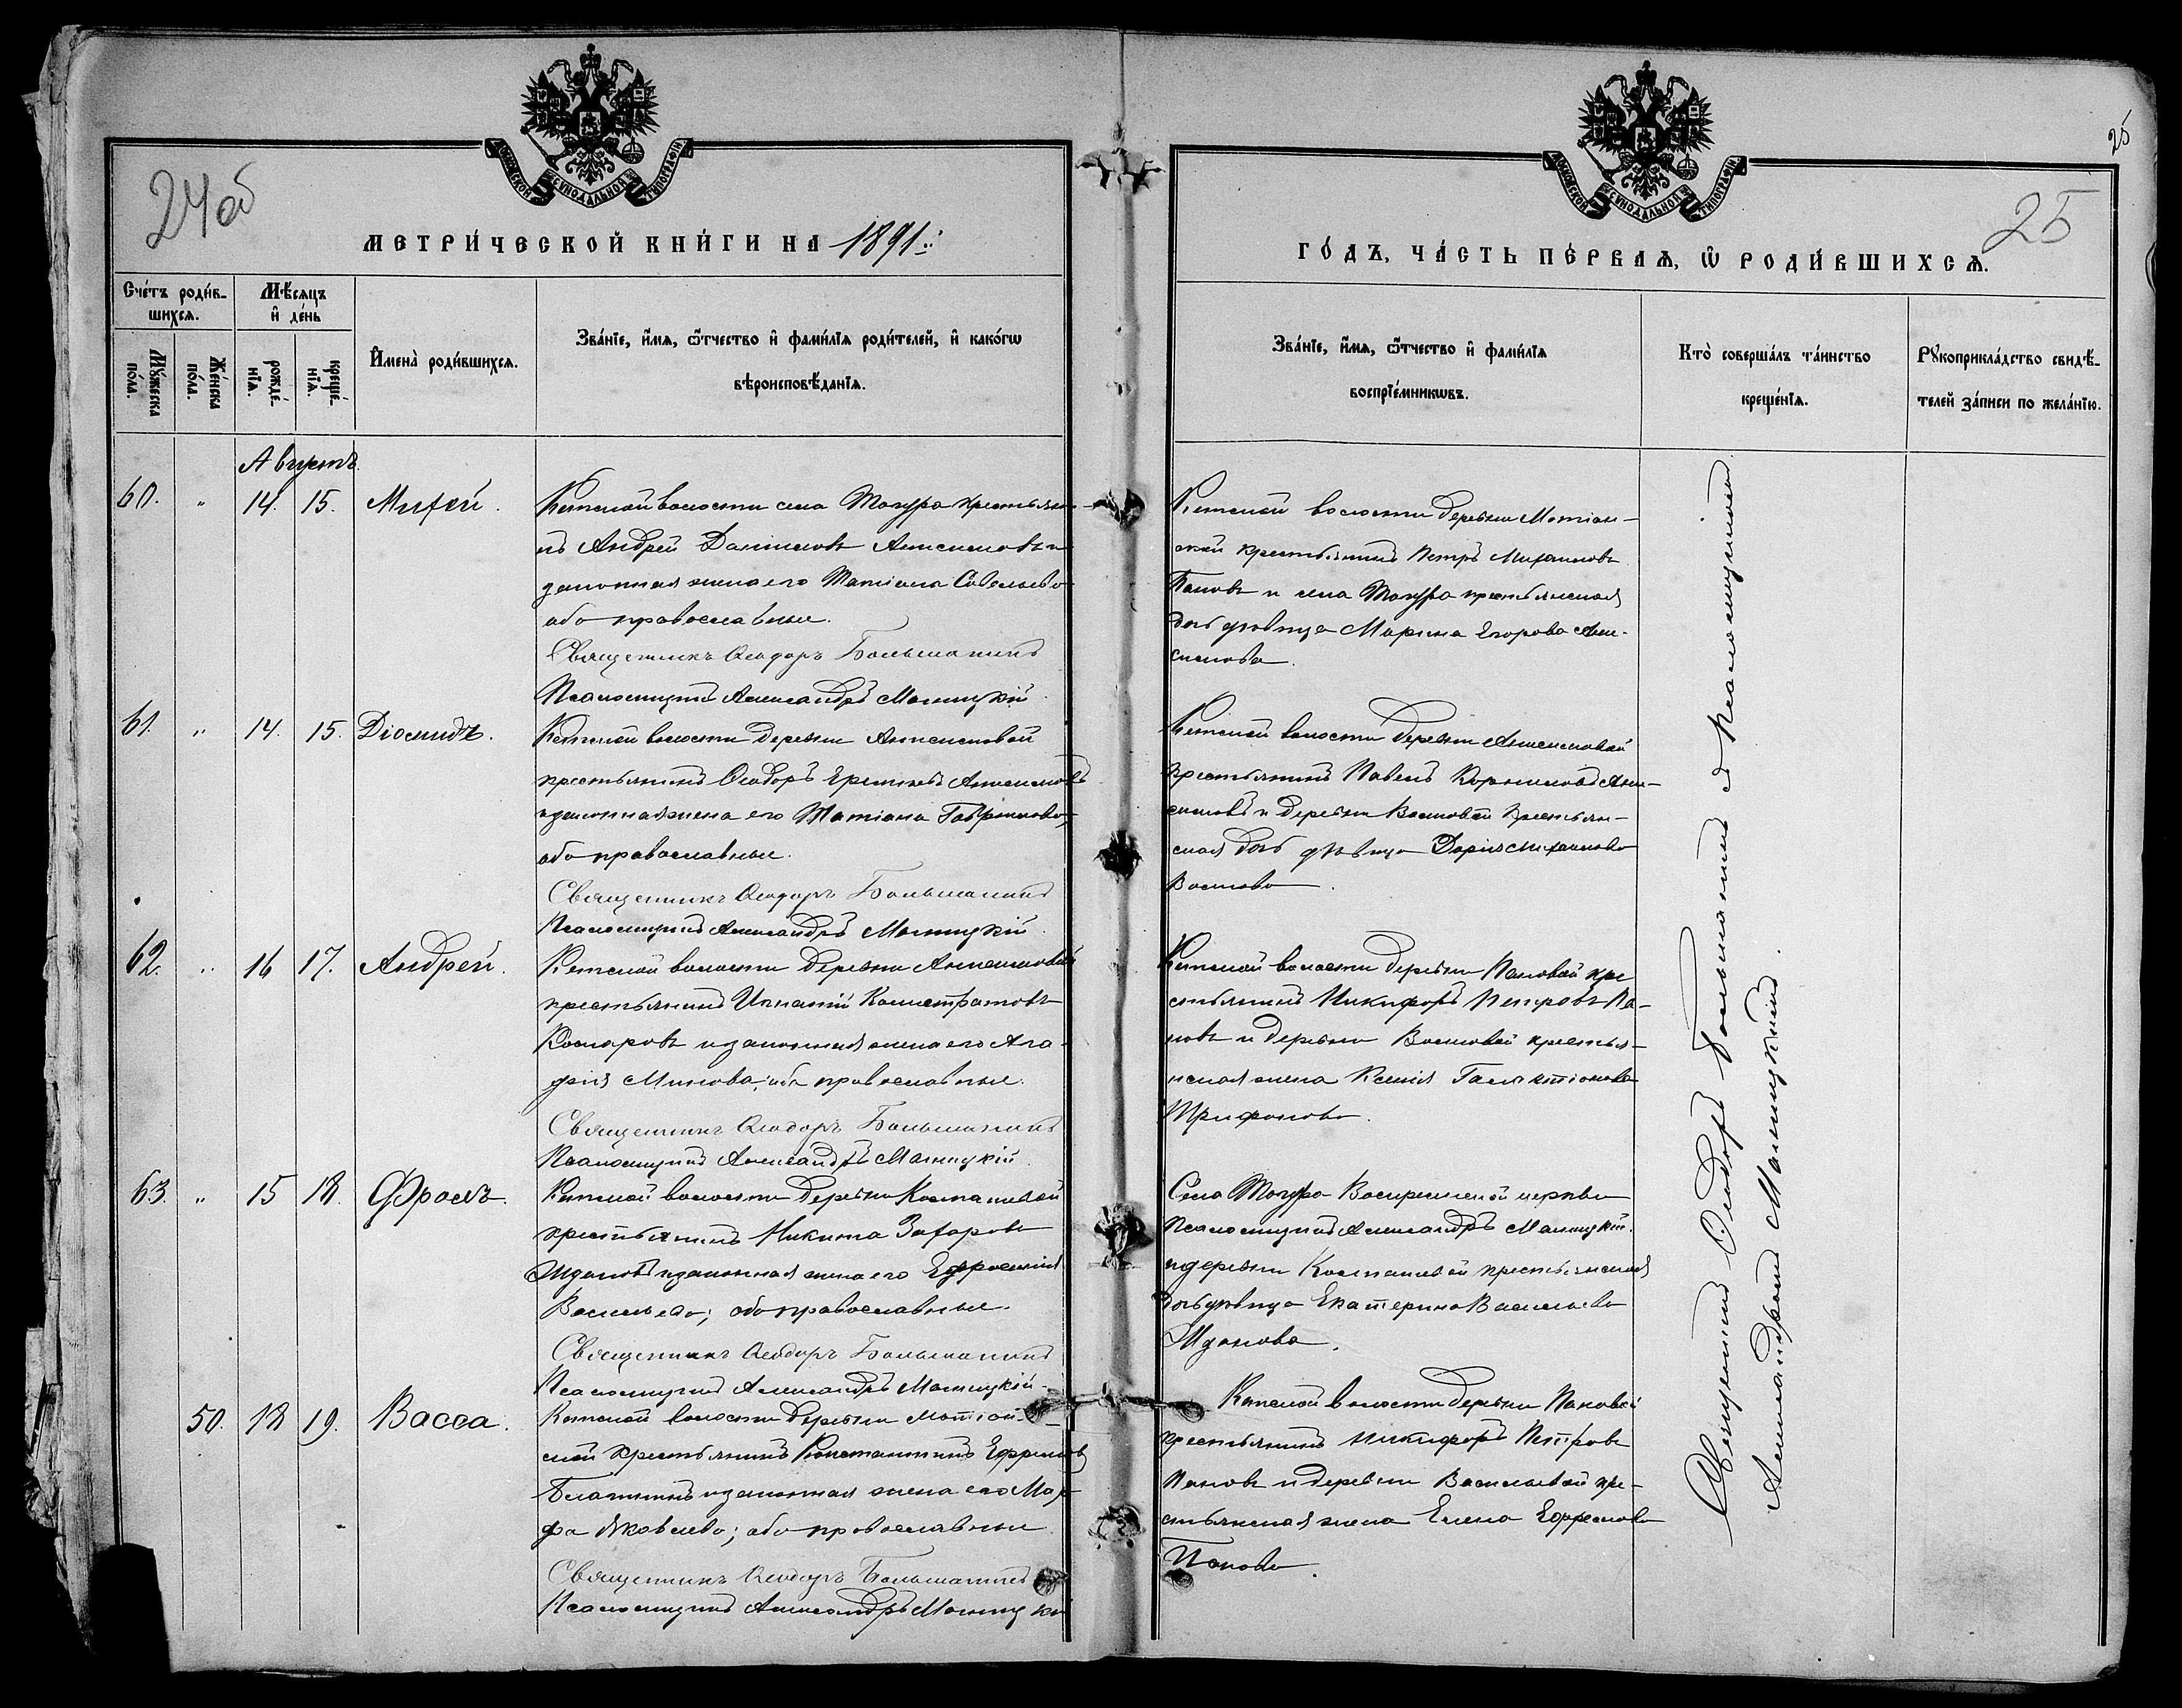 МОСКОВСКОЙ СѴНОДАЛЬНОЙ ТИПОГРАФІИ
24об
МЕТРИ́ЧЕСКОЙ КНИ́ГИ НА 1891.
Сче́тъ роди́в-
шихсѧ.
Мѣ́сяцъ
и҆ де́нь
Мꙋ́жеска
по́ла.
Же́нска
по́ла.
рожде́-
нїѧ.
креще́-
нїѧ.
И҆мена̀ роди́вшихсѧ.
Зва́нїе, и҆́мѧ, ѻ҆́тчество и҆ фами́лїѧ роди́телей, и҆ како́гѡ
вѣроисповѣ́данїѧ.
Августъ
60. " 14. 15. Михей.
Кетской волости села Тогура крестьяни-
нъ Андрей Даниловъ Анисимовъ и
законная жена его Татіана Савельева
оба православные.
Священникъ Ѳеодоръ Большанинъ
Псаломщикъ Александръ Магницкій.
61. " 14. 15. Діомидъ.
Кетской волости деревни Анисимовой
крестьянинъ Ѳеодоръ Анисимовъ
и законная жена его Татіана Гаврилова,
оба православные.
Священникъ Ѳеодоръ Большанинъ
Псаломщикъ Александръ Магницкій.
62. " 16 17. Андрей.
Кетской волости деревни Анисимовой
крестьянинъ Игнатій Каллистратовъ
Комаровъ и законная жена его Ага-
фія Минова, оба православные.
Священникъ Ѳеодоръ Большанинъ
Псаломщикъ Александръ Магницкій.
63. " 15 18. Фролъ.
Кетской волости деревни Колпашевой
крестьянинъ Никита Захаровъ
Ждановъ и законная жена его Ефросинія
Васильева; оба православные.
Священникъ Ѳеодоръ Большанинъ
Псаломщикъ Александръ Магницкій.
50. 18 19. Васса.
Кетской волости деревни Матіан-
ской крестьянинъ Константинъ Ефремовъ
и законная жена его Мар-
фа Яковлева; оба православные.
Священникъ Ѳеодоръ Большанинъ
Псаломщикъ Александръ Магницкій
МОСКОВСКОЙ СѴНОДАЛЬНОЙ ТИПОГРАФІИ
25
25
ГО́ДЪ, ЧА́СТЬ ПЕ́РВАѦ, Ѡ҆ РОДИ́ВШИХСѦ.
Зва́нїе, и҆́мѧ, ѻ҆́тчество и҆ фами́лїѧ
воспрїе́мникѡвъ.
Кто̀ соверша́лъ та́инство
креще́нїѧ.
Рꙋкоприкла́дство свидѣ́-
телей за́писи по жела́нїю.
Кетской волости деревни Матіан-
ской крестьянинъ Петръ Михаиловъ
Пановъ и села Тогура крестьянская
дочь дѣвица Марина Егорова Ани-
симова.
Кетской волости деревни Анисимовой
крестьянинъ Павелъ Корниловъ Ани-
симовъ и деревни Волковой крестьян-
ская дочь дѣвица Дарія Михаилова
Волкова.
Кетской волости деревни Пановой кре
стьянинъ Никифоръ Петровъ Па-
новъ и деревни Волковой крестья-
нская жена Ксенія Галактіонова
Трифонова.
Села Тогура Воскресенской церкви
Псаломщикъ Александръ Магницкій.
и деревни Колпашевой крестьянская
дочь дѣвица Екатерина Васильева
Жданова.
Кетской волости деревни Пановой
крестьянинъ Никифоръ Петровъ
Пановъ и деревни Васильевой кре-
стьянская жена Елена Ефремова
Панова.
Священникъ Ѳеодоръ Большанинъ съ Псаломщикомъ
Александромъ Магницкимъ.